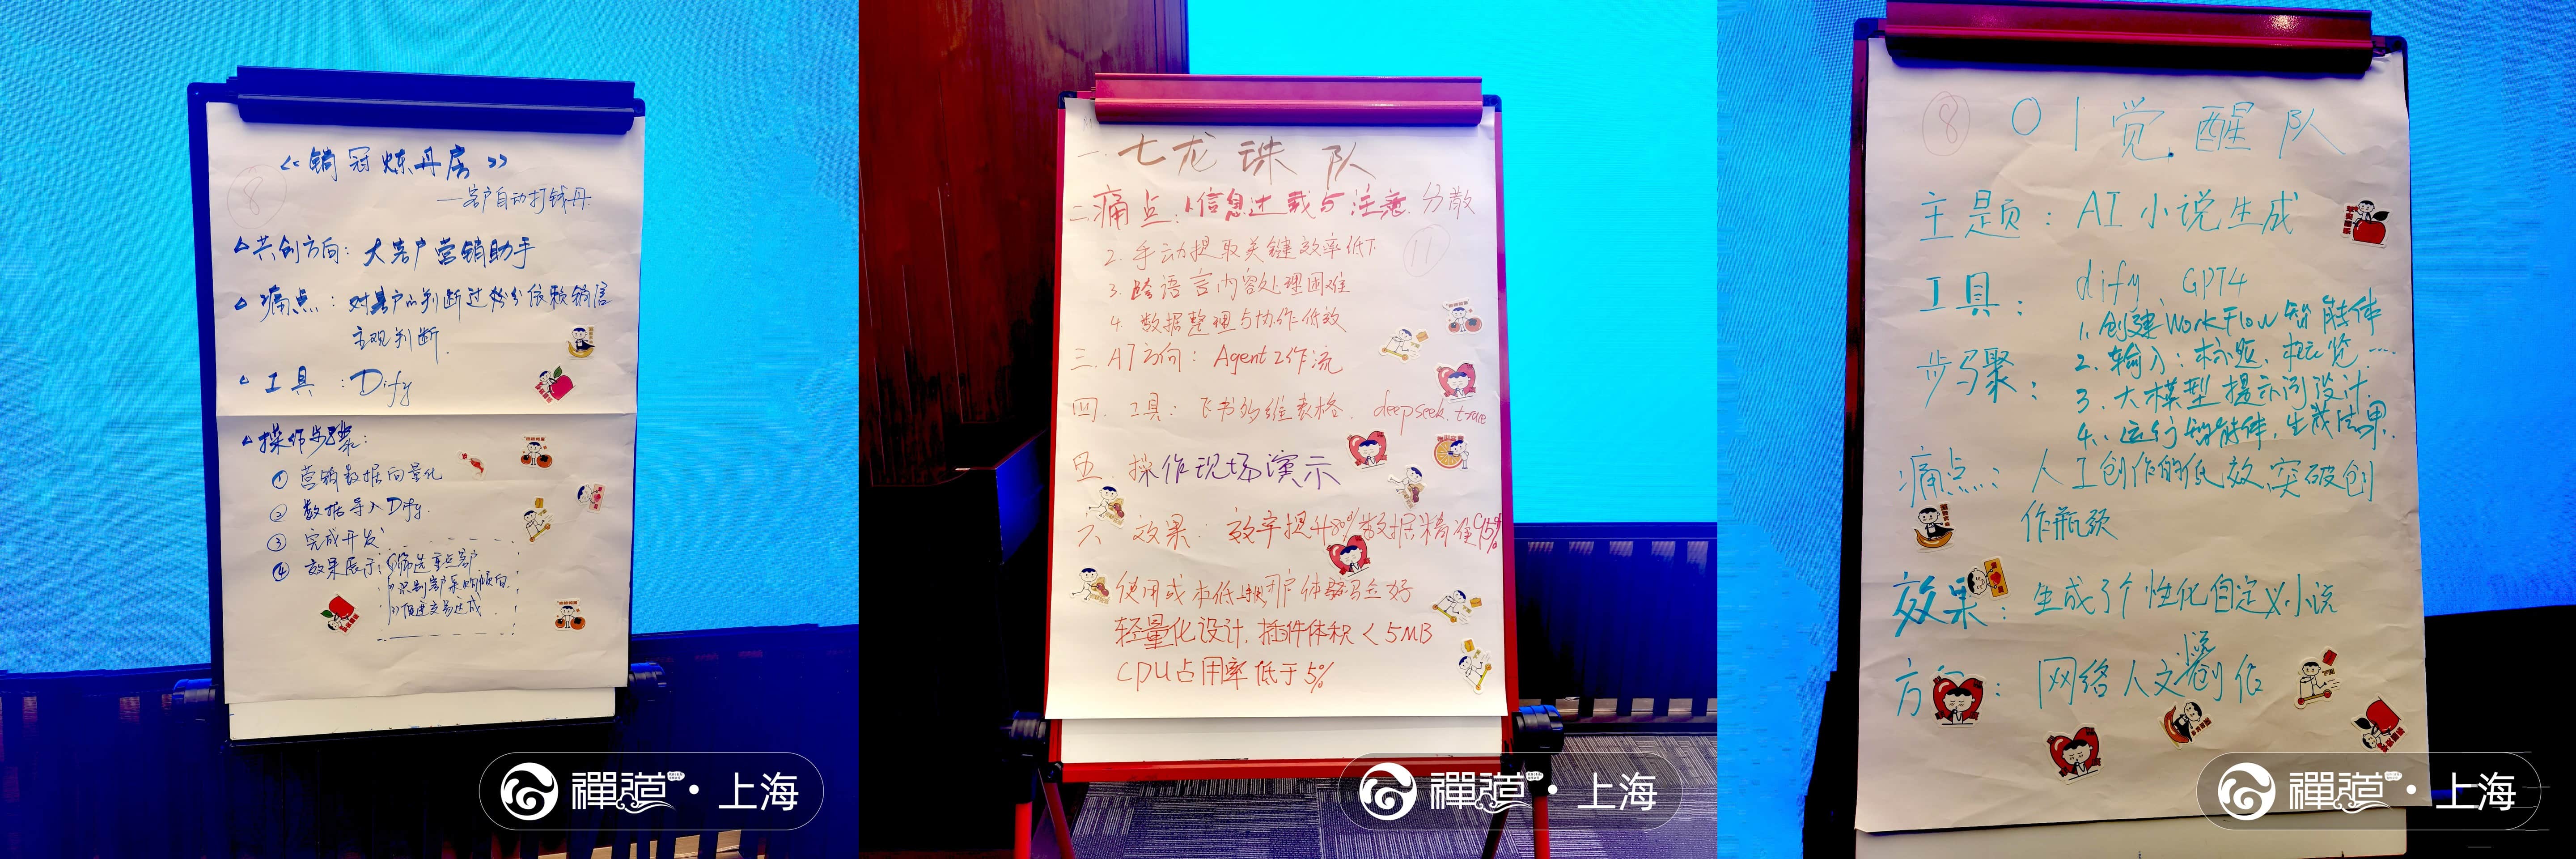 《销冠炼丹房》
——客户自动打钱丹
8
共创方向：大客户营销助手
痛点：对客户的判断过分依赖销售
主观判断.
工具：Dify
操作步骤：
① 营销数据向量化
② 数据导入Dify.
③ 完成开发
④ 效果展示：筛选重点客户
识别客户采购倾向.
促进交易达成
禪道·上海
一.七龙珠队
二.痛点：1.信息过载与注意分散
2. 手动提取关键效率低下
11
3. 跨语言内容处理困难
4. 数据整理与协作低效
三.AI方向：Agent工作流
四.工具：飞书多维表格. deepseek. trae
五.操作现场演示
六 效果：效率提升80%数据精准95%
使用成本低 用户体验良好
轻量化设计.插件体积<5MB
CPU占用率低于5%
禪道·上海
8
01觉醒队
主题：AI小说生成
工具：dify、GPT4
步骤：1. 创建WorkFlow智能体
2. 输入：标题、概览…
3. 大模型提示词设计.
4. 运行智能体,生成结果.
痛点：人工创作的低效,突破创
作瓶颈
效果：生成了个性化自定义小说
方 ：网络人文 创作
禪道·上海